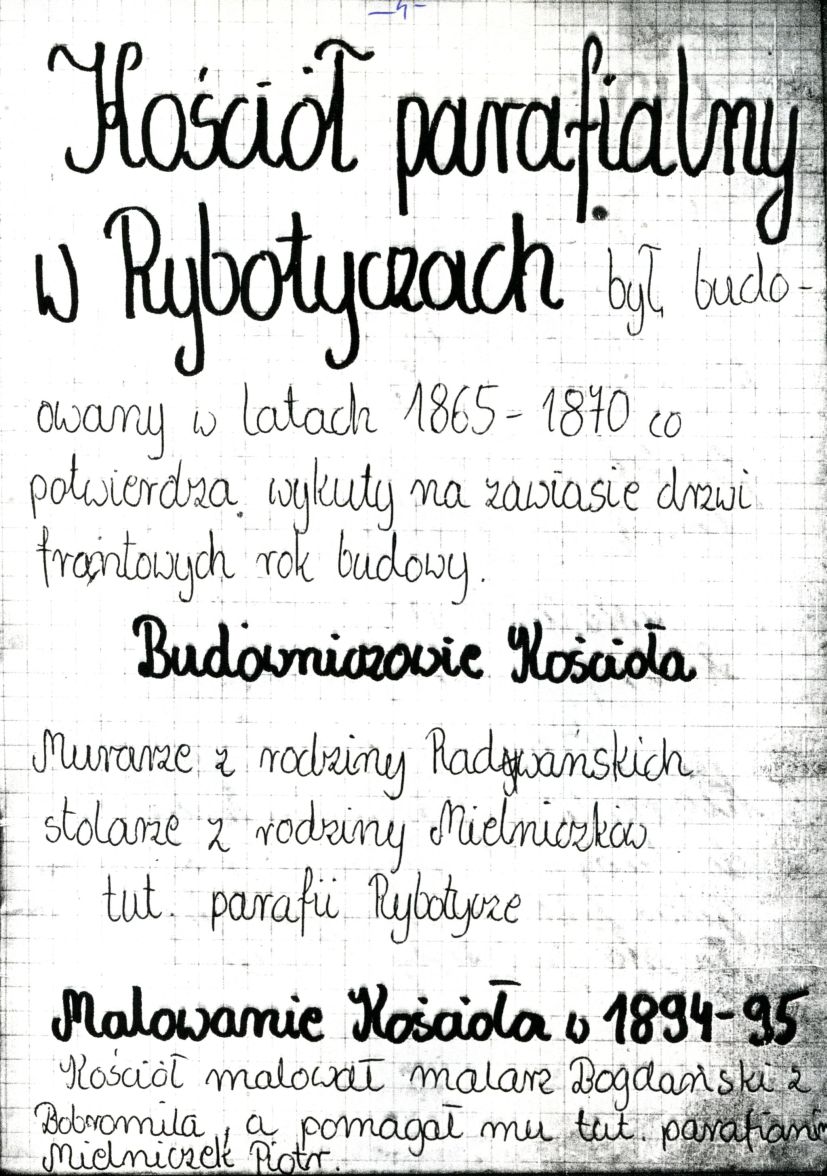 -4-
Kościół parafialny
w Rybotyczach był budo-
owany w latach 1865-1870 co
potwierdza wykuty na zawiasie drzwi
frontowych rok budowy.
Budowniczowie Kościoła
Murarze z rodziny Radywańskich
stolarze z rodziny Mielniczków
tut. parafii Rybotycze
Malowanie Kościoła w 1894-95
Kościół malował malarz Bogdański z
Bobromila, a pomagał mu tut. parafianin
Mielniczek Piotr.